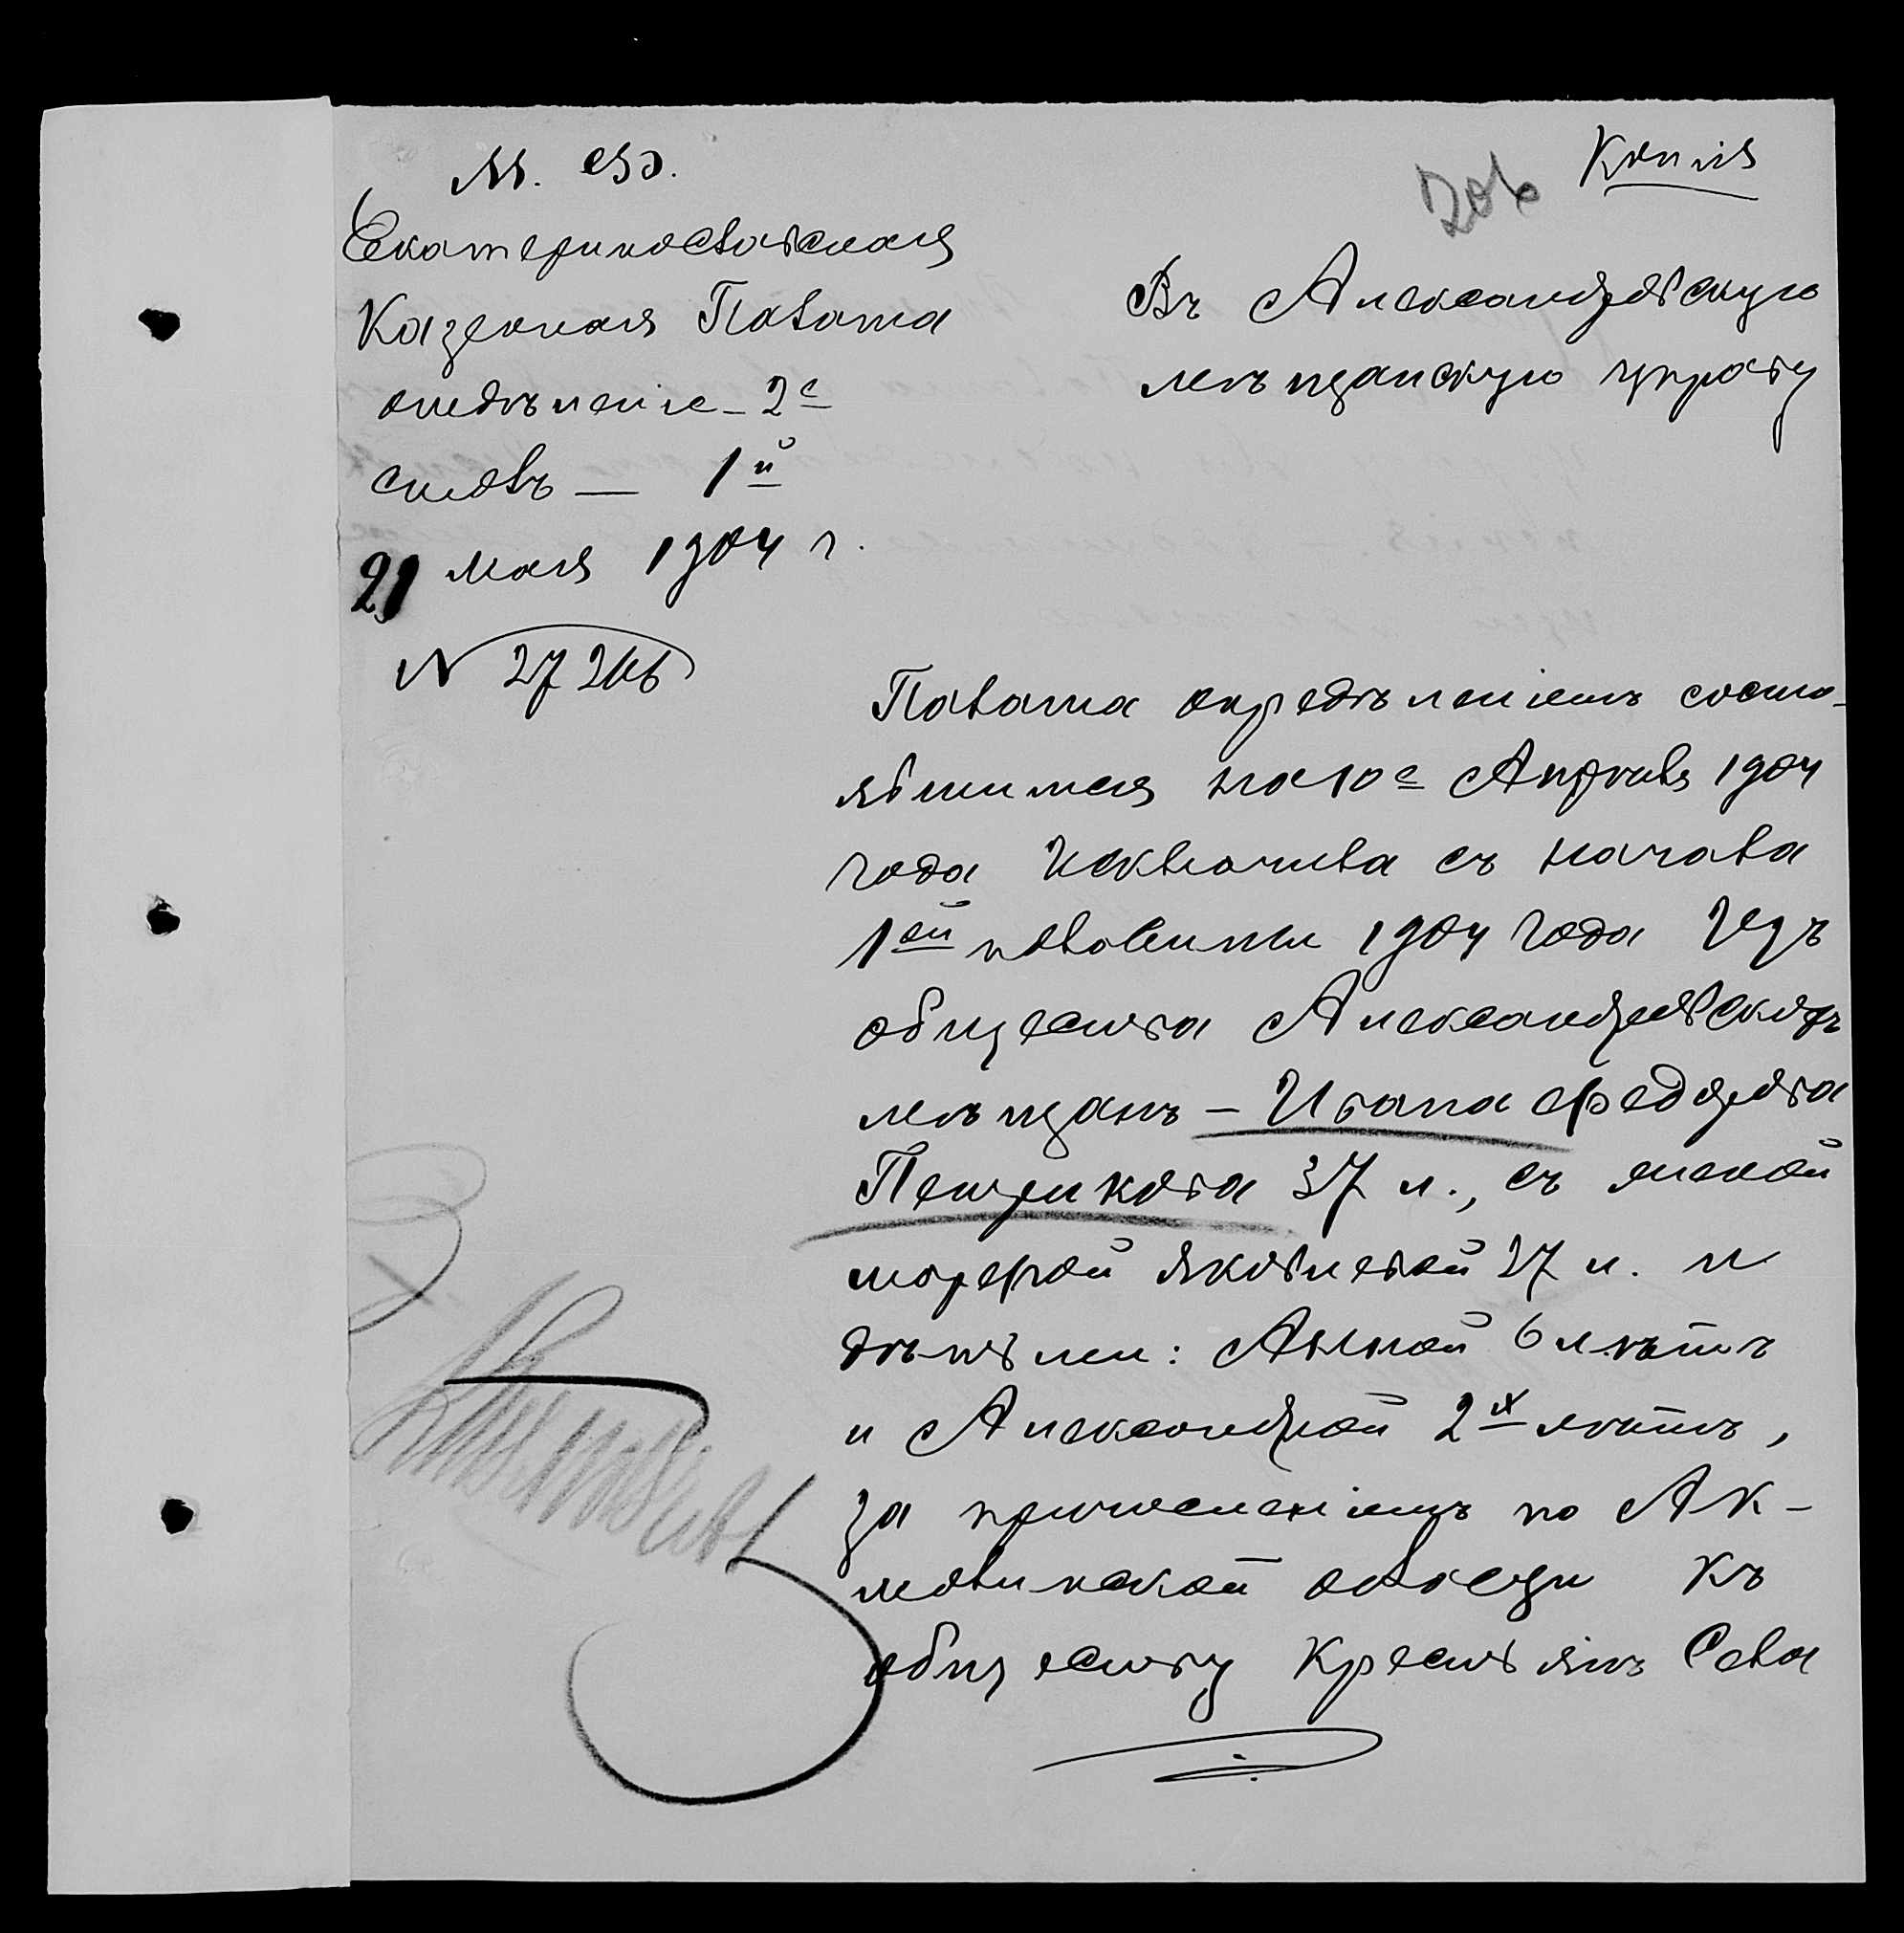 М. Ф.
Екатеринославская
Казенная Палата
отдѣленіе - 2е
столъ — 1й
21 мая 1904 г.
N 27216
206
Копія
Въ Александровскую
мѣщанскую управу
Палата опредѣленіемъ состо-
явшимся на 10е Апрѣля 1904
года исключила съ начала
1ой половины 1904 года изъ
общества Александровскихъ
мѣщанъ - Ивана Федорова
37 л., съ женой
Яковлевой 27 л. и
дѣтьми: Анной 6 лѣтъ
и Александрой 2х лѣтъ,
за причисленіемъ по Ак-
молинской области къ
обществу крестьянъ Села